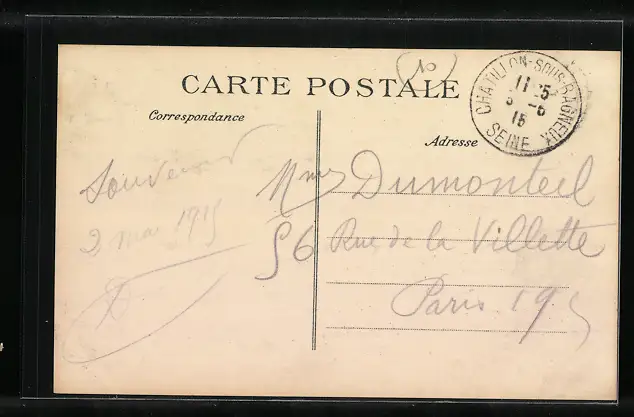 (10)
CARTE POSTALE
Correspondance
Adresse
CHATILLON-SOUS-BAGNEUX
11 35
3 -5
15
SEINE
Souvenir
2 mai 1915
Mme Dumonteil
56 Rue de la Villette
Paris 19e